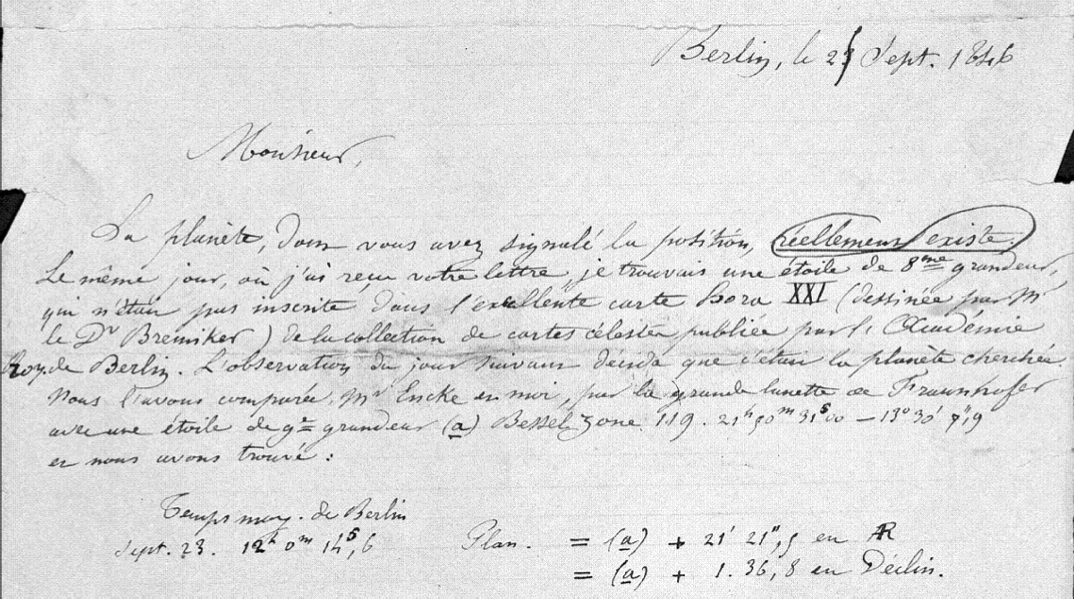 Berlin, le 25 Sept. 1846
Monsieur,
La planète, dont vous avez signalé la position, réellement existe.
Le même jour, où j'ai reçu votre lettre, je trouvais une étoile de 8me grandeur,
qui n'était pas inscrite dans l'excellente carte Hora XXI (dessinée par Mr
le Dr Bremiker) de la collection de cartes célestes publiée par l'Académie
Roy. de Berlin. L'observation du jour suivant décida que c'était la planète cherchée.
Nous l'avons comparée, Mr Encke et moi, par la grande lunette de Fraunhofer
avec une étoile de 9e grandeur (a) Bessel Zone 119. 21h 50m 31s00 – 13° 30' 7"9
et nous avons trouvé :
Temps moy. de Berlin
Sept. 23. 12h 0m 14s,6 Plan. = (a) + 21' 21", en AR
= (a) + 1. 36, 8 en Déclin.